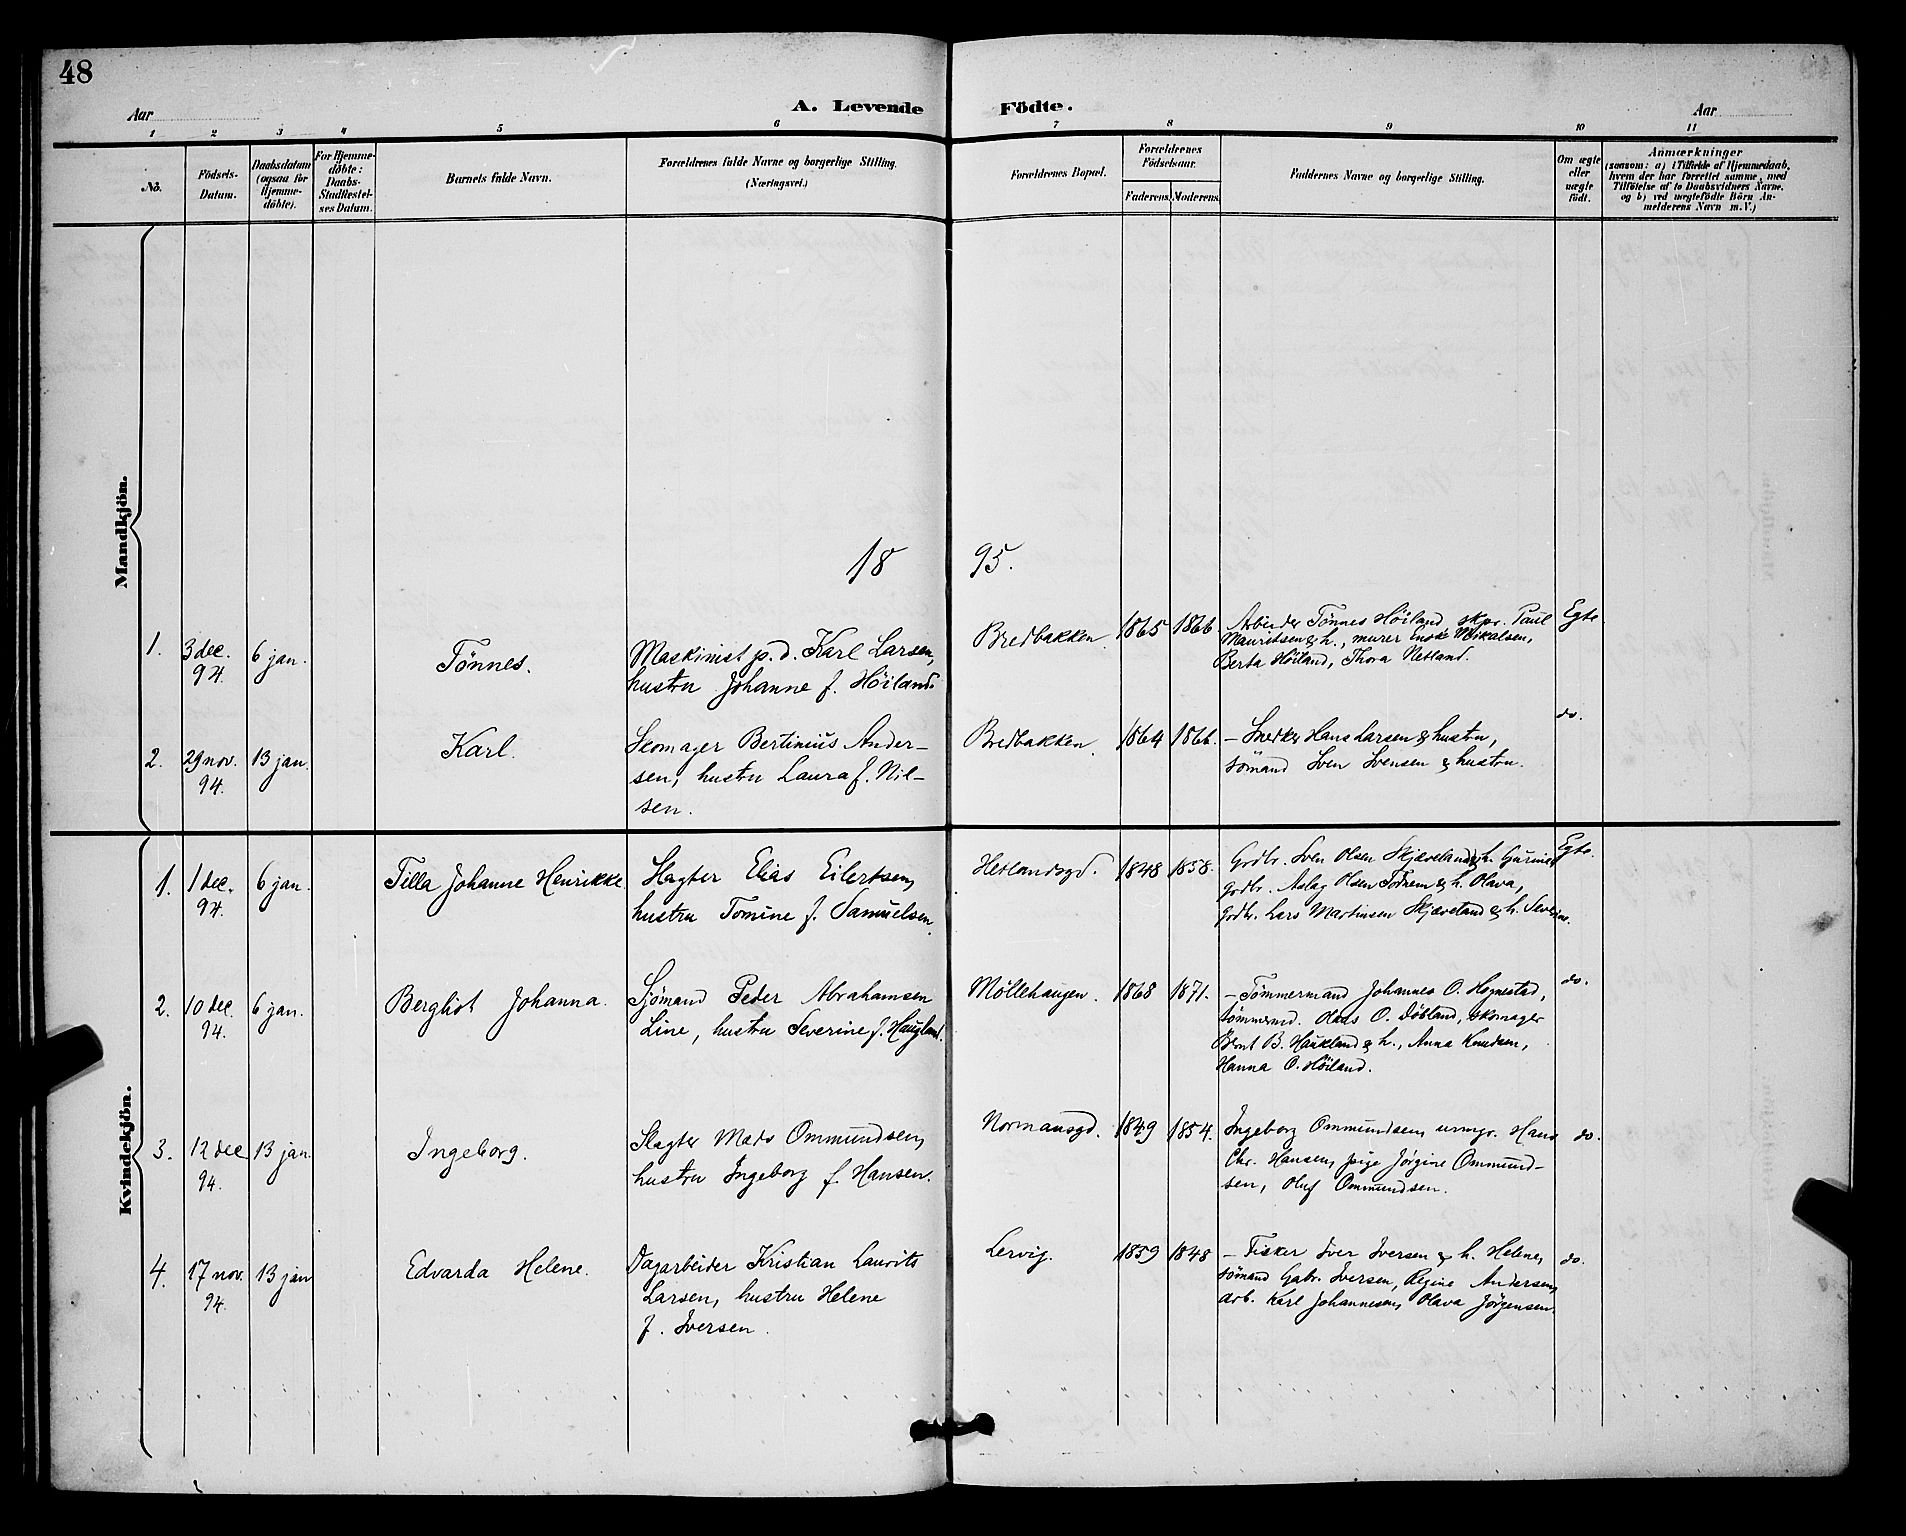 48
A. Levende Födte.
Aar
Aar
1 2 3 4 5 6 7 8 9 10 11
No.
Födsels-
Datum.
Daabsdatum
(ogsaa for
Hjemme-
döbte).
For Hjemme-
döbte:
Daabs-
Stadfæstel-
ses Datum.
Barnets fulde Navn.
Forældrenes fulde Navne og borgerlige Stilling.
(Næringsvei.)
Forældrenes Bopæl.
Forældrenes
Födselsaar.
Faderens. Moderens.
Faddernes Navne og borgerlige Stilling.
Om ægte
eller
uægte
födt.
Anmærkninger
(saasom: a) i Tilfælde af Hjemmedaab,
hvem der har forrettet samme, med
Tilföielse af to Daabsvidners Navne.
og b) ved uægtefödte Börn An-
melderens Navn m. V.)
Mandkjön.
1895.
1.
3 dec.
94.
6 jan.
Tönnes.
Maskinist p. d. Karl Larsen,
hustru Johanne f. Höiland.
Bredbakken.
1865 1866
Arbeider Tönnes Höiland skpr. Paul
Mauritsen & h., murer Mikalsen,
Berta Höiland, Thora Netland.
Egte
2.
29 nov.
94.
13 jan.
Karl.
Skomager Bertinius Ander-
sen, hustru Laura f. Nil-
sen.
Bredbakken.
1864 1866.
– Snedker Hans Larsen & hustru,
sömand Sven Svensen & hustru.
do.
Kvindekjön.
1.
1 dec.
94.
6 jan.
Tilla Johanne Henrikke
Slagter Elias Eilertsen,
hustru Tomine f. Samuelsen.
Hetlandsgd.
1848 1858.
Grdbr. Sven Olsen Skjæveland & h. Gurine,
grdbr. Aslag Olsen Todnem & h. Olava,
grdbr. Lars Martinsen Skjæveland & h. Severine.
Egte.
2.
10 dec.
94.
6 jan.
Bergliot Johanna.
Sjömand Peder Abrahamsen
Line, hustru Severine f. Haugland.
Möllehaugen.
1868 1871.
– Tömmermand Johannes O. Hognestad,
tömmermd. O. skomager
Bernt B. Haukland & h., Anna Knudsen,
Hanna O. Höiland.
do.
3.
12 dec
94.
13 jan.
Ingeborg.
Slagter Mads Ommundsen,
hustru Ingeborg f. Hansen.
Normansgd.
1849 1854.
Ingeborg Ommundsen, urmgr. Hans
Chr. Hansen, pige Jörgine Ommund-
sen, Oluf Ommundsen.
do.
4.
17 nov.
94.
13 jan
Edvarda Helene.
Dagarbeider Kristian Laurits
Larsen, hustru Helene
f. Iversen.
Lervig.
1859 1848
– Fisker Iver Iversen & h. Helene,
sömand Gabr. Iversen, Regine Andersen,
arb. Karl Johannesen, Olava Jörgensen.
do.